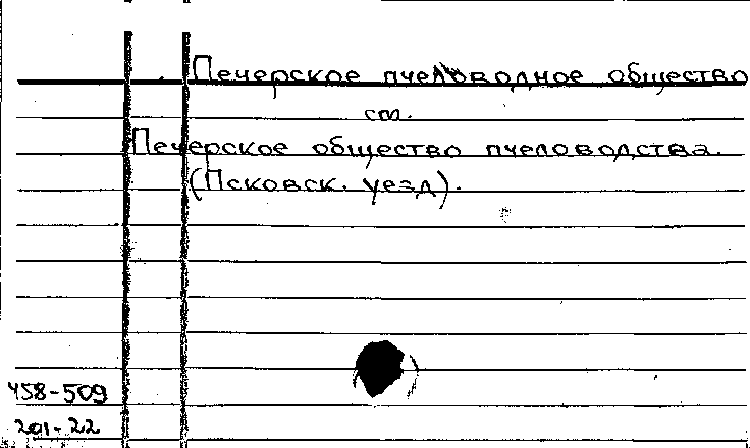 Печерское пчеловодное общество
см.
Печерское общество пчеловодства.
(Псковск. уезд).
458-509
201-22